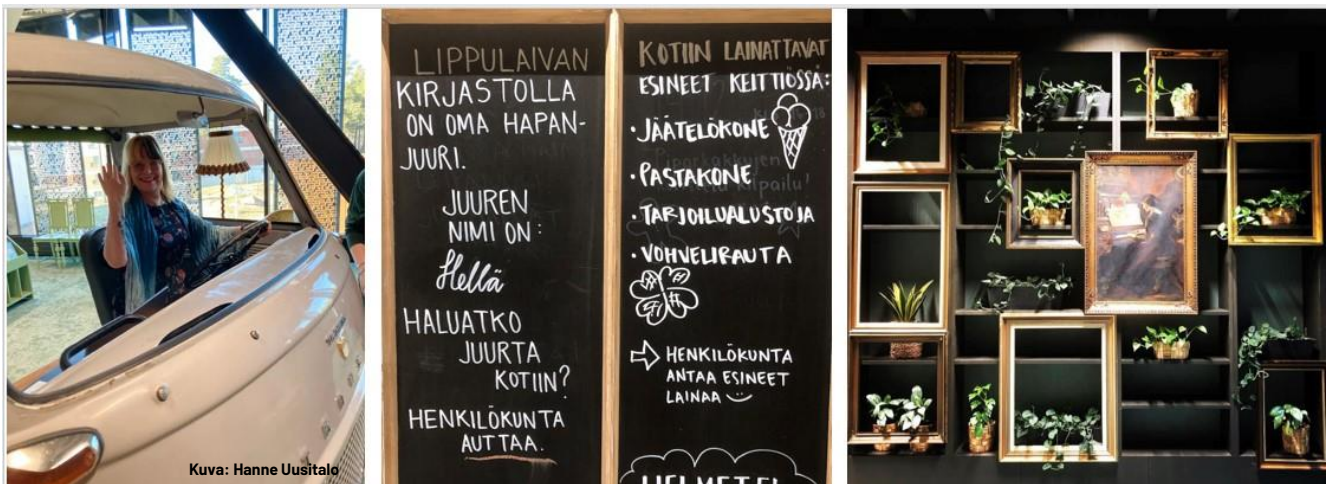 LIPPULAIVAN
KIRJASTOLLA
ON OMA HAPAN-
JUURI.
JUUREN
NIMI ON:
Hellä
HALUATKO
JUURTA
KOTIIN?
HENKILÖKUNTA
AUTTAA.
KOTIIN LAINATTAVAT
ESINEET KEITTIÖSSÄ:
• JÄÄTELÖKONE
• PASTAKONE
• TARJOILUALUSTOJA
• VOHVELIRAUTA
⇨ HENKILÖKUNTA
ANTAA ESINEET
LAINAA
Kuva: Hanne Uusitalo